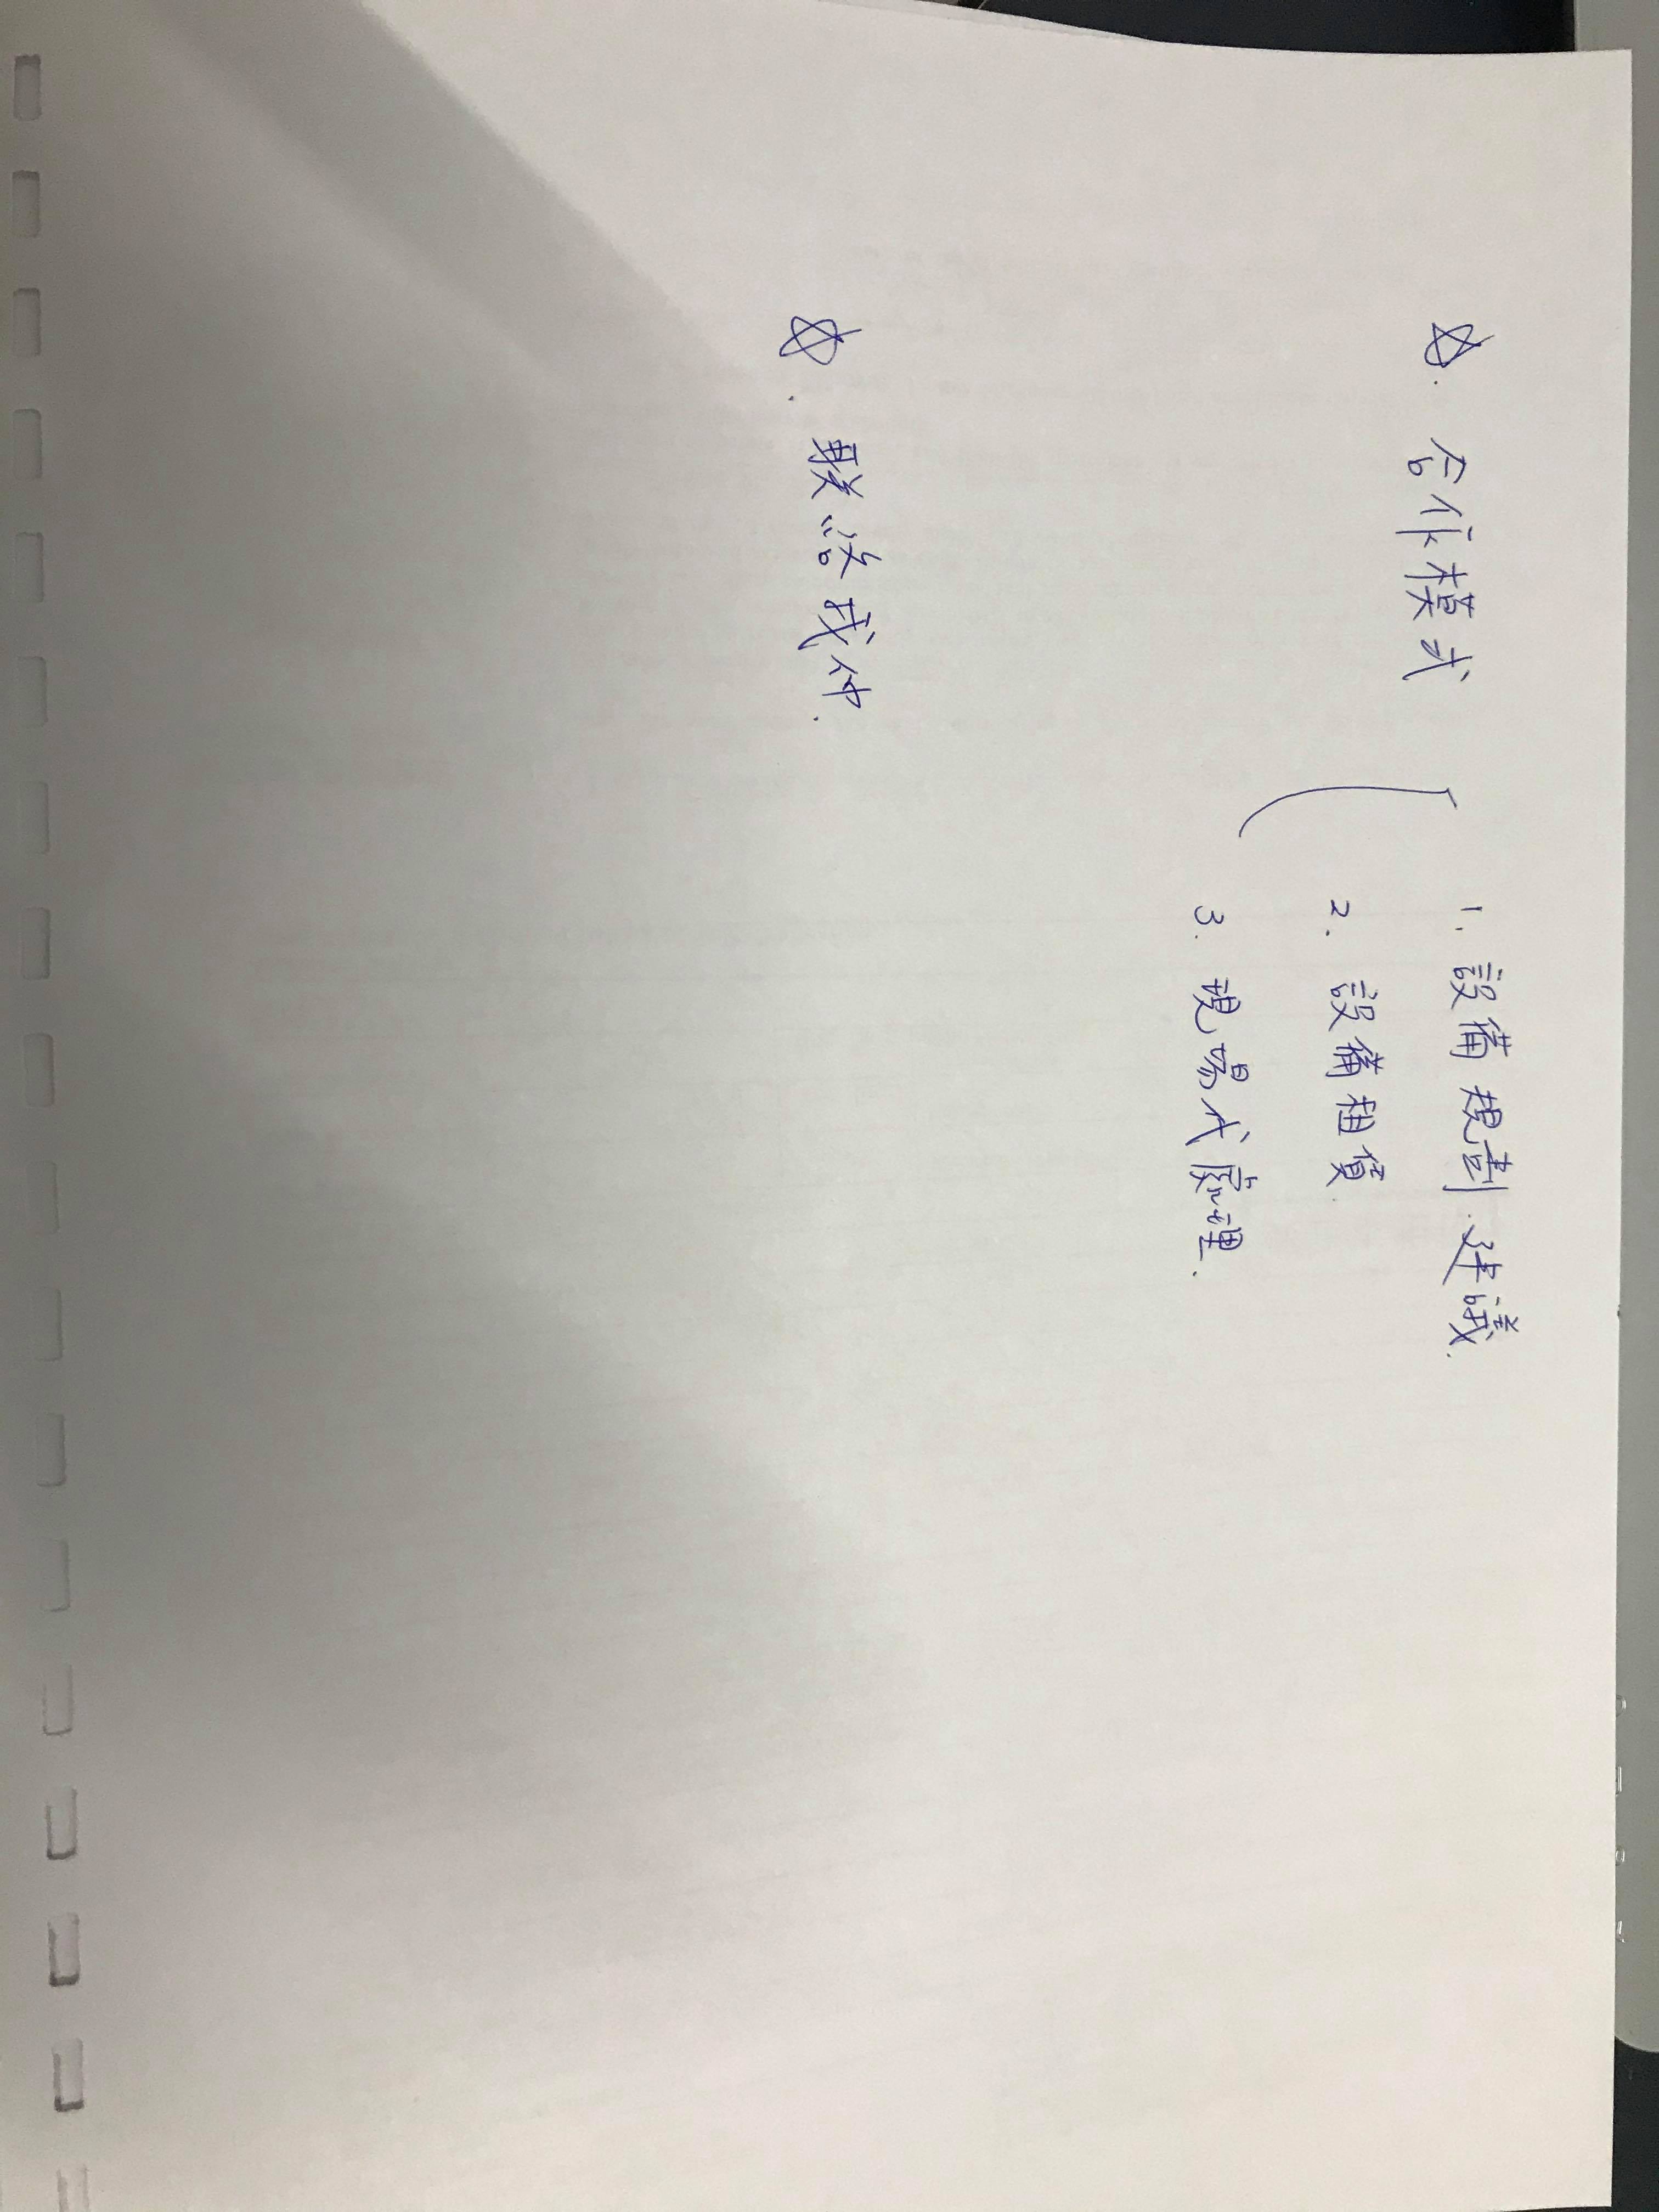 ☆. 合作模式
1. 設備規劃.建議.
2. 設備租賃.
3. 現場代處理.
☆. 联络我们.